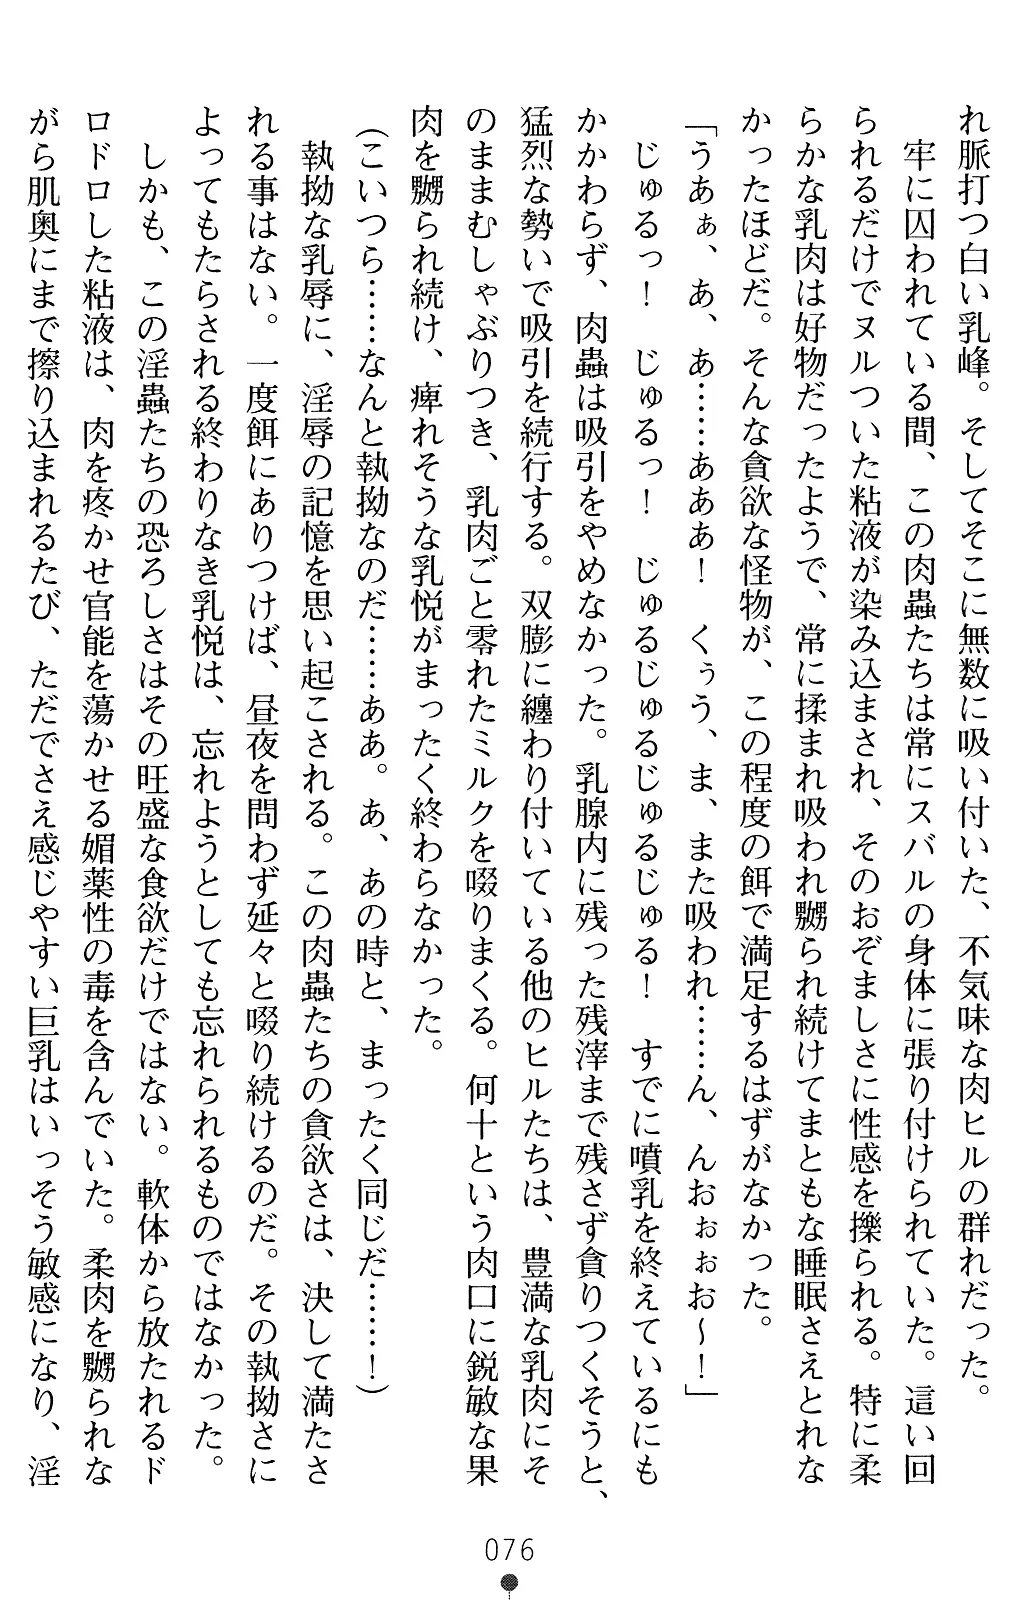 れ脈打つ白い乳峰。そしてそこに無数に吸い付いた、不気味な肉ヒルの群れだった。
　牢に囚われている間、この肉蟲たちは常にスバルの身体に張り付けられていた。這い回
られるだけでヌルついた粘液が染み込まされ、そのおぞましさに性感を擽られる。特に柔
らかな乳肉は好物だったようで、常に揉まれ吸われ嬲られ続けてまともな睡眠さえとれな
かったほどだ。そんな貪欲な怪物が、この程度の餌で満足するはずがなかった。
「うあぁ、あ、あ……あああ！　くぅう、ま、また吸われ……ん、んおぉぉお～！」
　じゅるっ！　じゅるっ！　じゅるじゅるじゅるじゅる！　すでに噴乳を終えているにも
かかわらず、肉蟲は吸引をやめなかった。乳腺内に残った残滓まで残さず貪りつくそうと、
猛烈な勢いで吸引を続行する。双膨に纏わり付いている他のヒルたちは、豊満な乳肉にそ
のままむしゃぶりつき、乳肉ごと零れたミルクを啜りまくる。何十という肉口に鋭敏な果
肉を嬲られ続け、痺れそうな乳悦がまったく終わらなかった。
（こいつら……なんと執拗なのだ……ああ。あ、あの時と、まったく同じだ……！）
　執拗な乳辱に、淫辱の記憶を思い起こされる。この肉蟲たちの貪欲さは、決して満たさ
れる事はない。一度餌にありつけば、昼夜を問わず延々と啜り続けるのだ。その執拗さに
よってもたらされる終わりなき乳悦は、忘れようとしても忘れられるものではなかった。
　しかも、この淫蟲たちの恐ろしさはその旺盛な食欲だけではない。軟体から放たれるド
ロドロした粘液は、肉を疼かせ官能を蕩かせる媚薬性の毒を含んでいた。柔肉を嬲られな
がら肌奥にまで擦り込まれるたび、ただでさえ感じやすい巨乳はいっそう敏感になり、淫
076